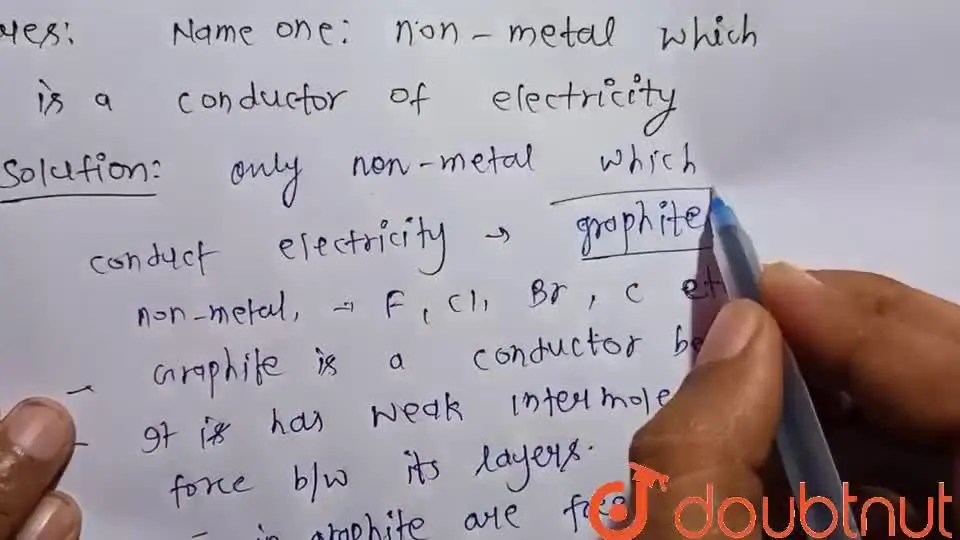 Name one: non-metal which
is a conductor of electricity
Solution: only non-metal which
conduct electricity → graphite
non-metal, → F, Cl, Br, C
- Graphite is a conductor
- It is has weak
force b/w its layers.
- in graphite are
doubtnut